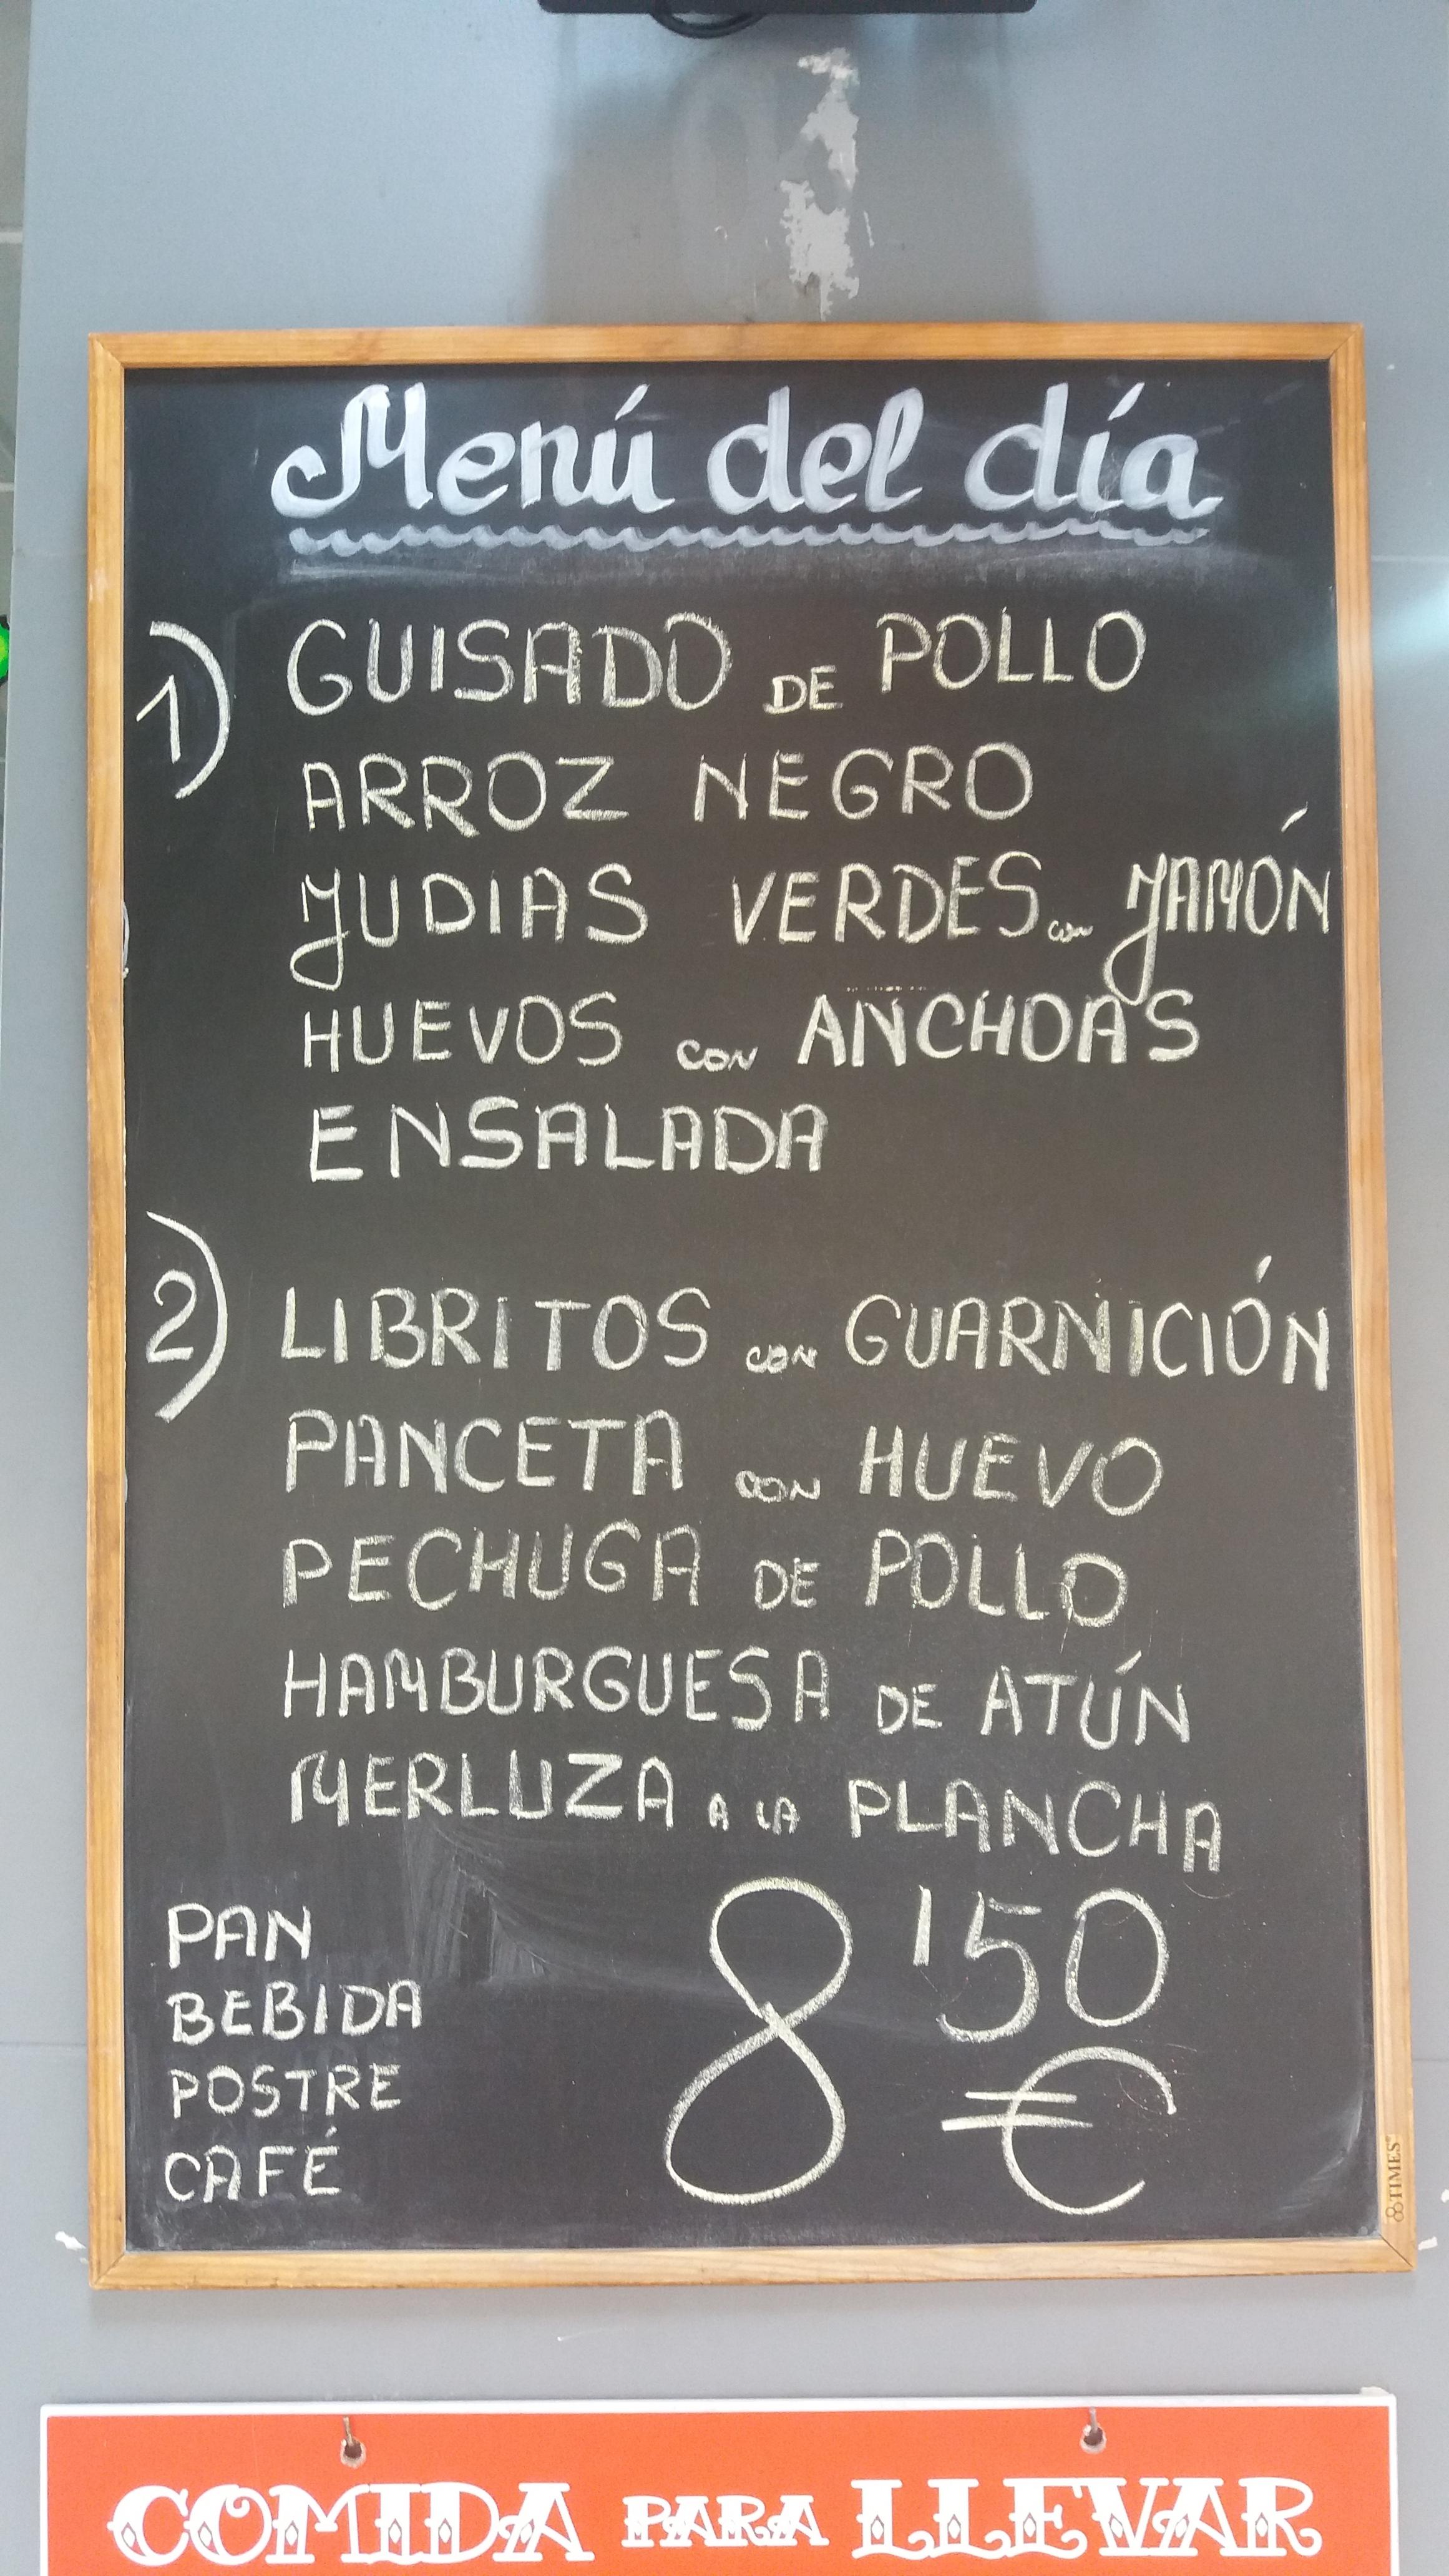 Menú del día
1) GUISADO DE POLLO
ARROZ NEGRO
JUDIAS VERDES con JAMÓN
HUEVOS CON ANCHOAS
ENSALADA
2) LIBRITOS CON GUARNICIÓN
PANCETA CON HUEVO
PECHUGA DE POLLO
HAMBURGUESA DE ATÚN
MERLUZA A LA PLANCHA
PAN
BEBIDA
POSTRE
CAFÉ
8'50
€
TIMES
COMIDA PARA LLEVAR